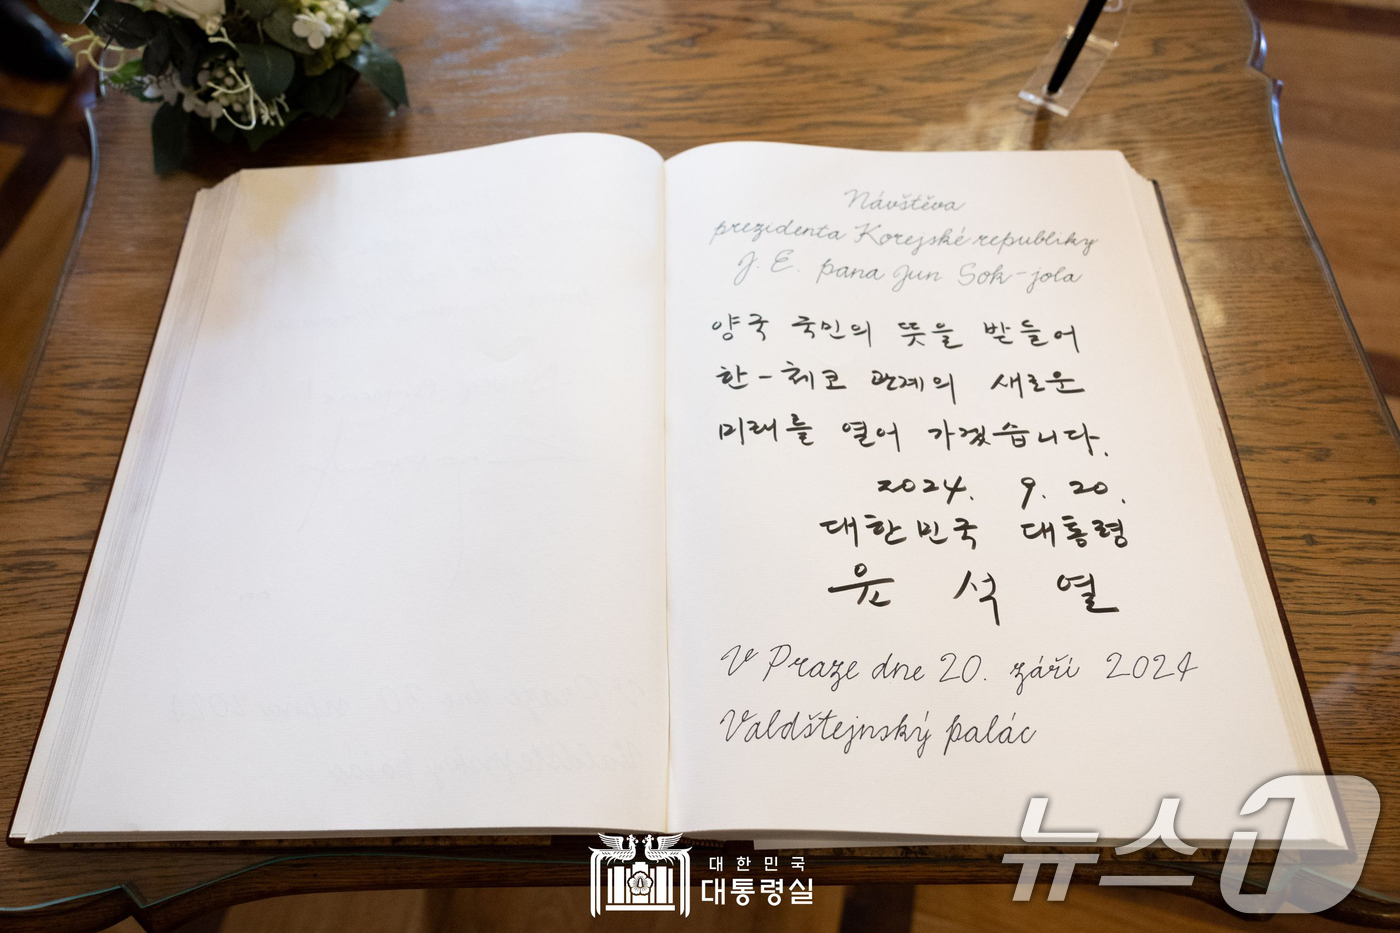 Návštěva
prezidenta Korejské republiky
J. E. pana Jun Sok-jola
양국 국민의 뜻을 받들어
한-체코 관계의 새로운
미래를 열어 가겠습니다.
2024. 9. 20.
대한민국 대통령
윤 석 열
V Praze dne 20. září 2024
Valdštejnský palác
대한민국
대통령실
뉴스1